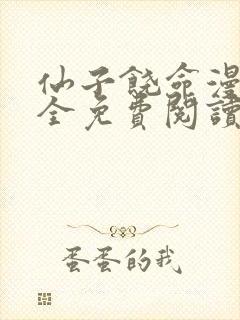 仙子饶命漫
全免費閱讀
蛋蛋的我